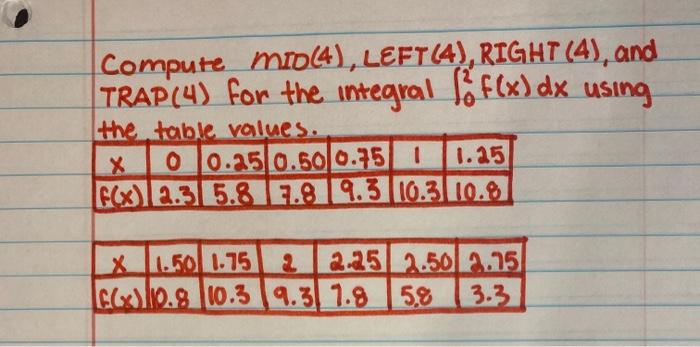 Compute MID(4), LEFT(4), RIGHT(4), and
TRAP(4) for the integral ∫₀² f(x) dx using
the table values.
x 0 0.25 0.50 0.75 1 1.25
f(x) 2.3 5.8 7.8 9.3 10.3 10.8
x 1.50 1.75 2 2.25 2.50 2.75
f(x) 10.8 10.3 9.3 7.8 5.8 3.3